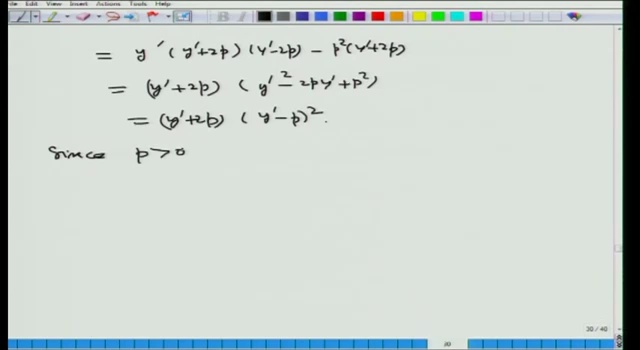 File Insert Actions Tools Help
= y' (y'+2p) (y'-2p) - p²(y'+2p)
= (y'+2p) (y'² - 2py' + p²)
= (y'+2p) (y'-p)².
Since p>0
30 / 40
30